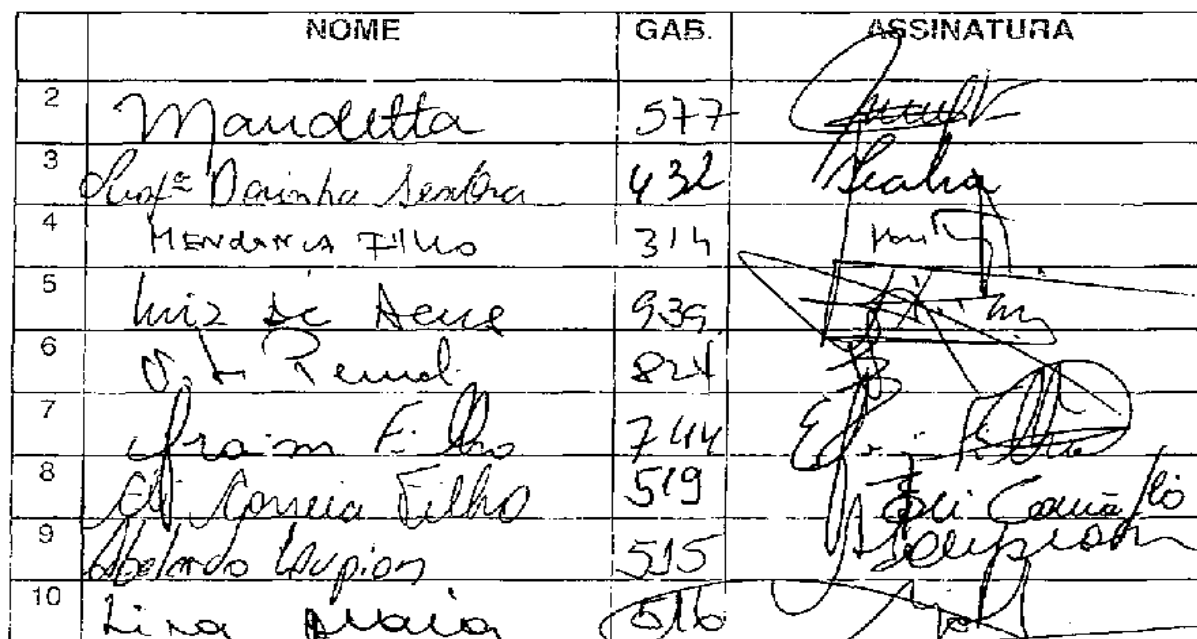 NOME GAB. ASSINATURA
2 Mandetta 577
3 Profª Dorinha Seabra 432 Seabra
4 MENDONCA FILHO 314
5 Luiz de Deus 939
6 824
7 Efraim Filho 744 Efraim Filho
8 Eli Correia Filho 519 Eli Corrêa Fº
9 Abelardo Lupion 515 Lupion
10 Lira Maia 516